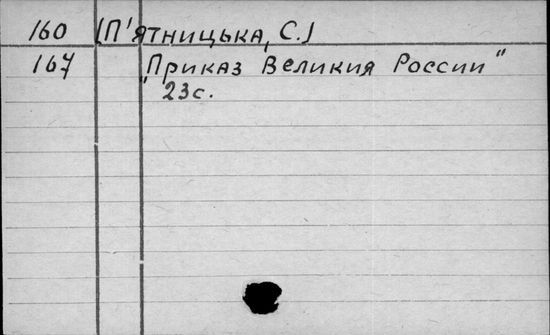 160 (П'ятницька, С.)
167 "Приказ Великия России"
23с.